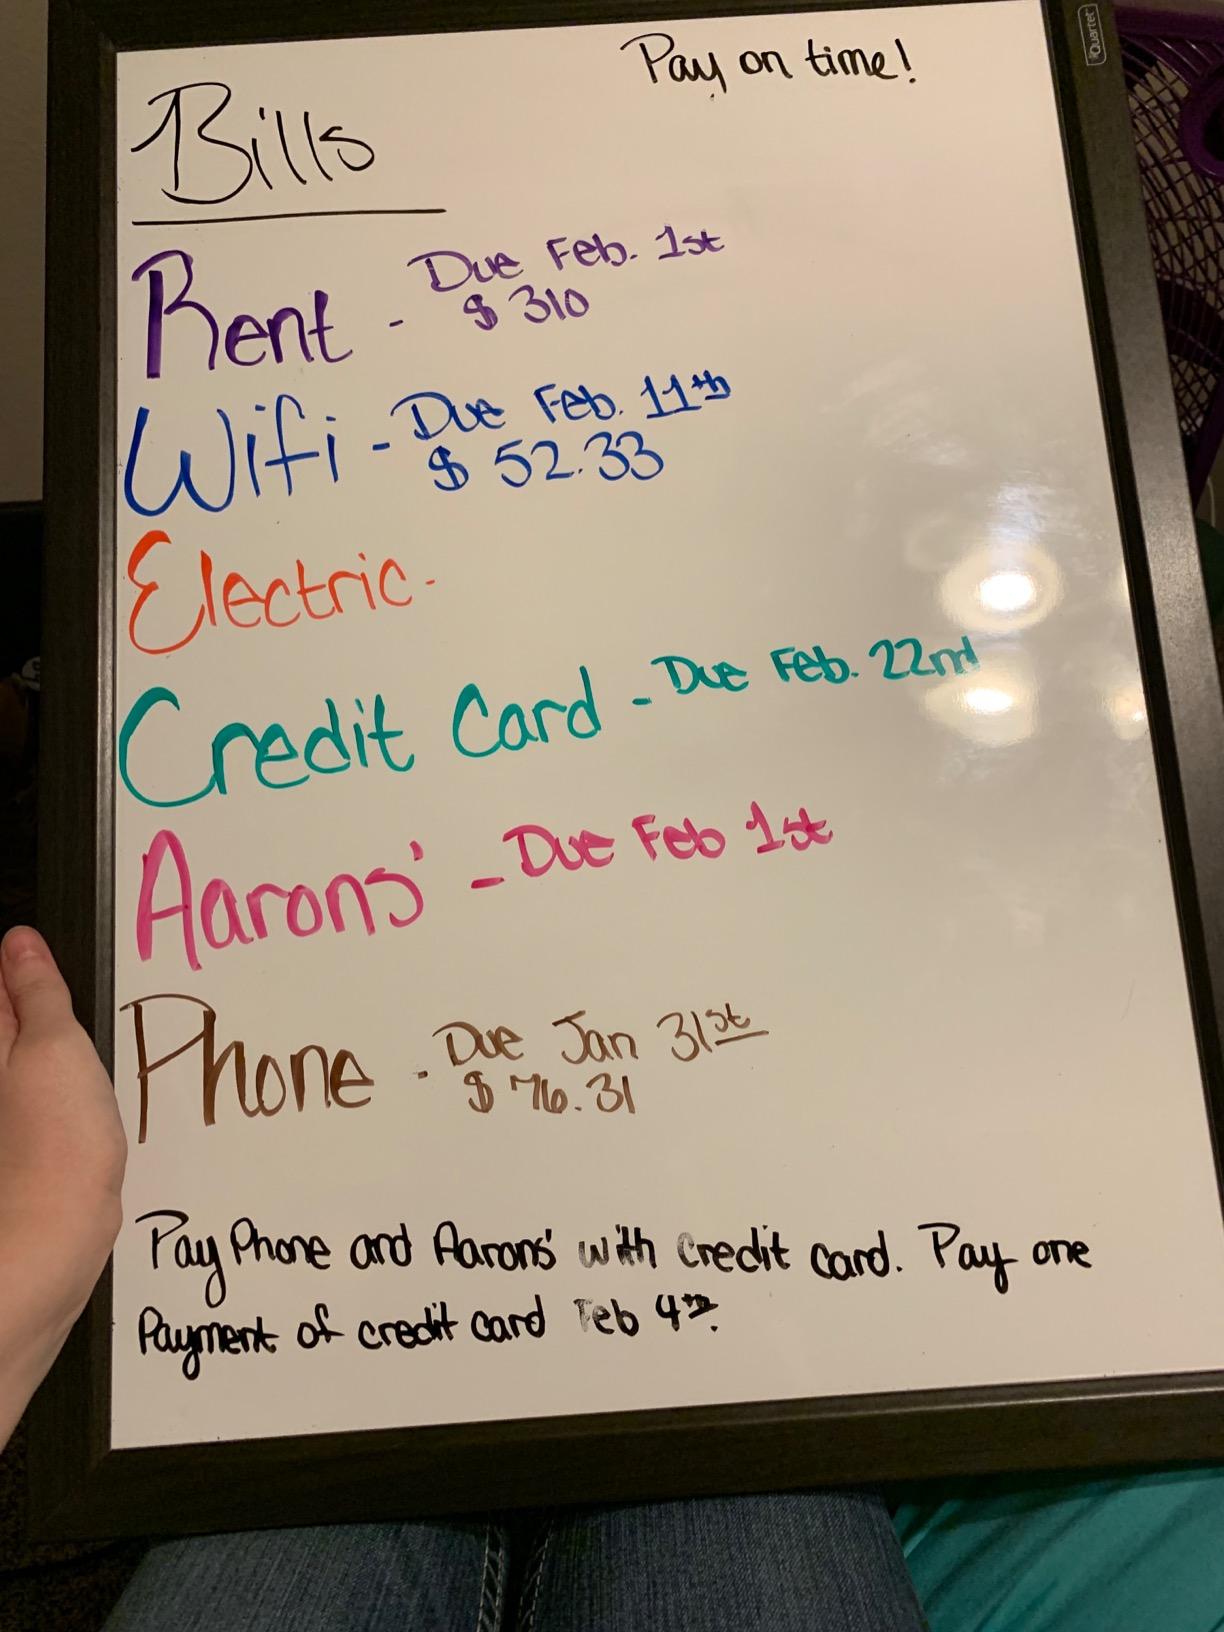 Quartet
Pay on time!
Bills
Rent - Due Feb. 1st
$ 310
Wifi - Due Feb. 11th
$ 52.33
Electric -
Credit Card - Due Feb. 22nd
Aarons' - Due Feb 1st
Phone - Due Jan 31st
$ 76.31
Pay Phone and Aarons' with credit card. Pay one
Payment of credit card Feb 4th.